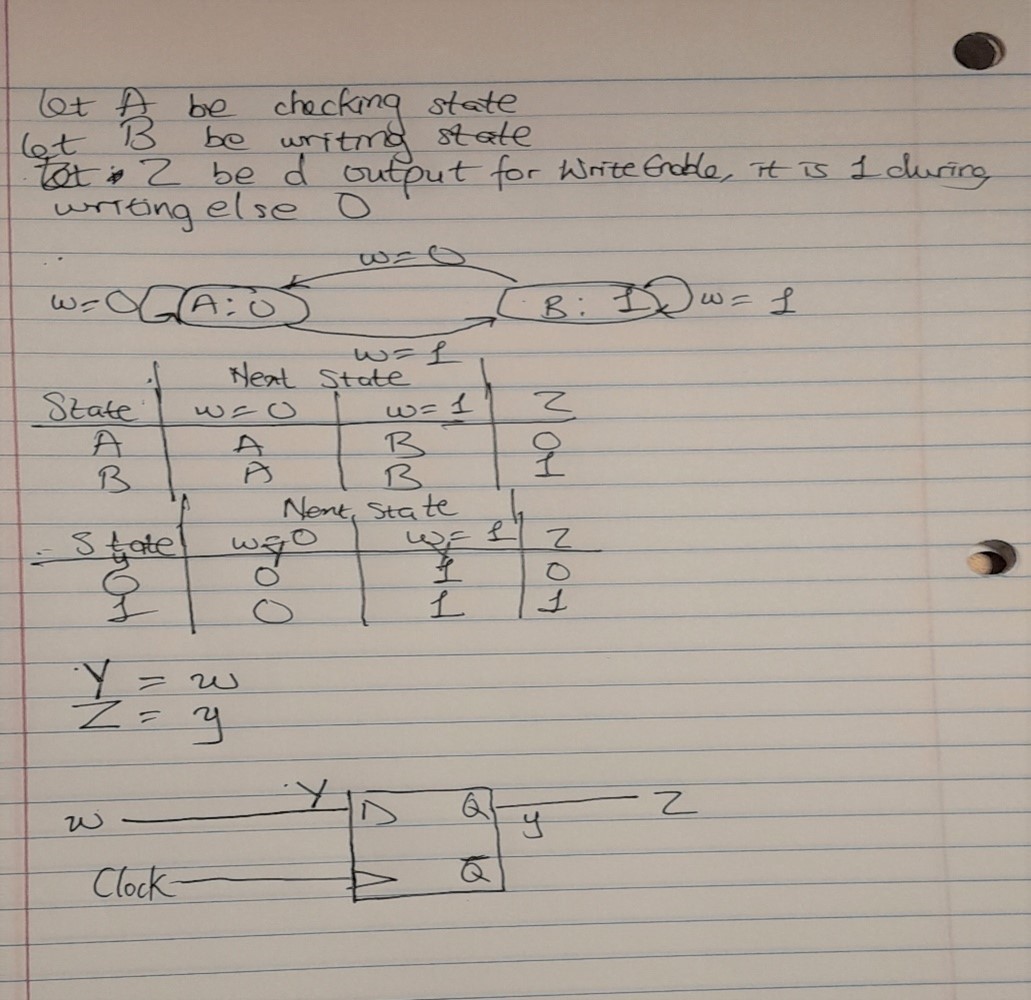 let A be checking state
let B be writing state
let Z be d output for WriteEnable, it is 1 during
writing else 0
w=0
w=0 A:0 B: 1 w=1
w=1
Next State
State w=0 w=1 Z
A A B 0
B A B 1
Next State
State w=0 w=1 Z
y y y
0 0 1 0
1 0 1 1
Y = w
Z = y
w Y D Q y Z
Clock Q̅